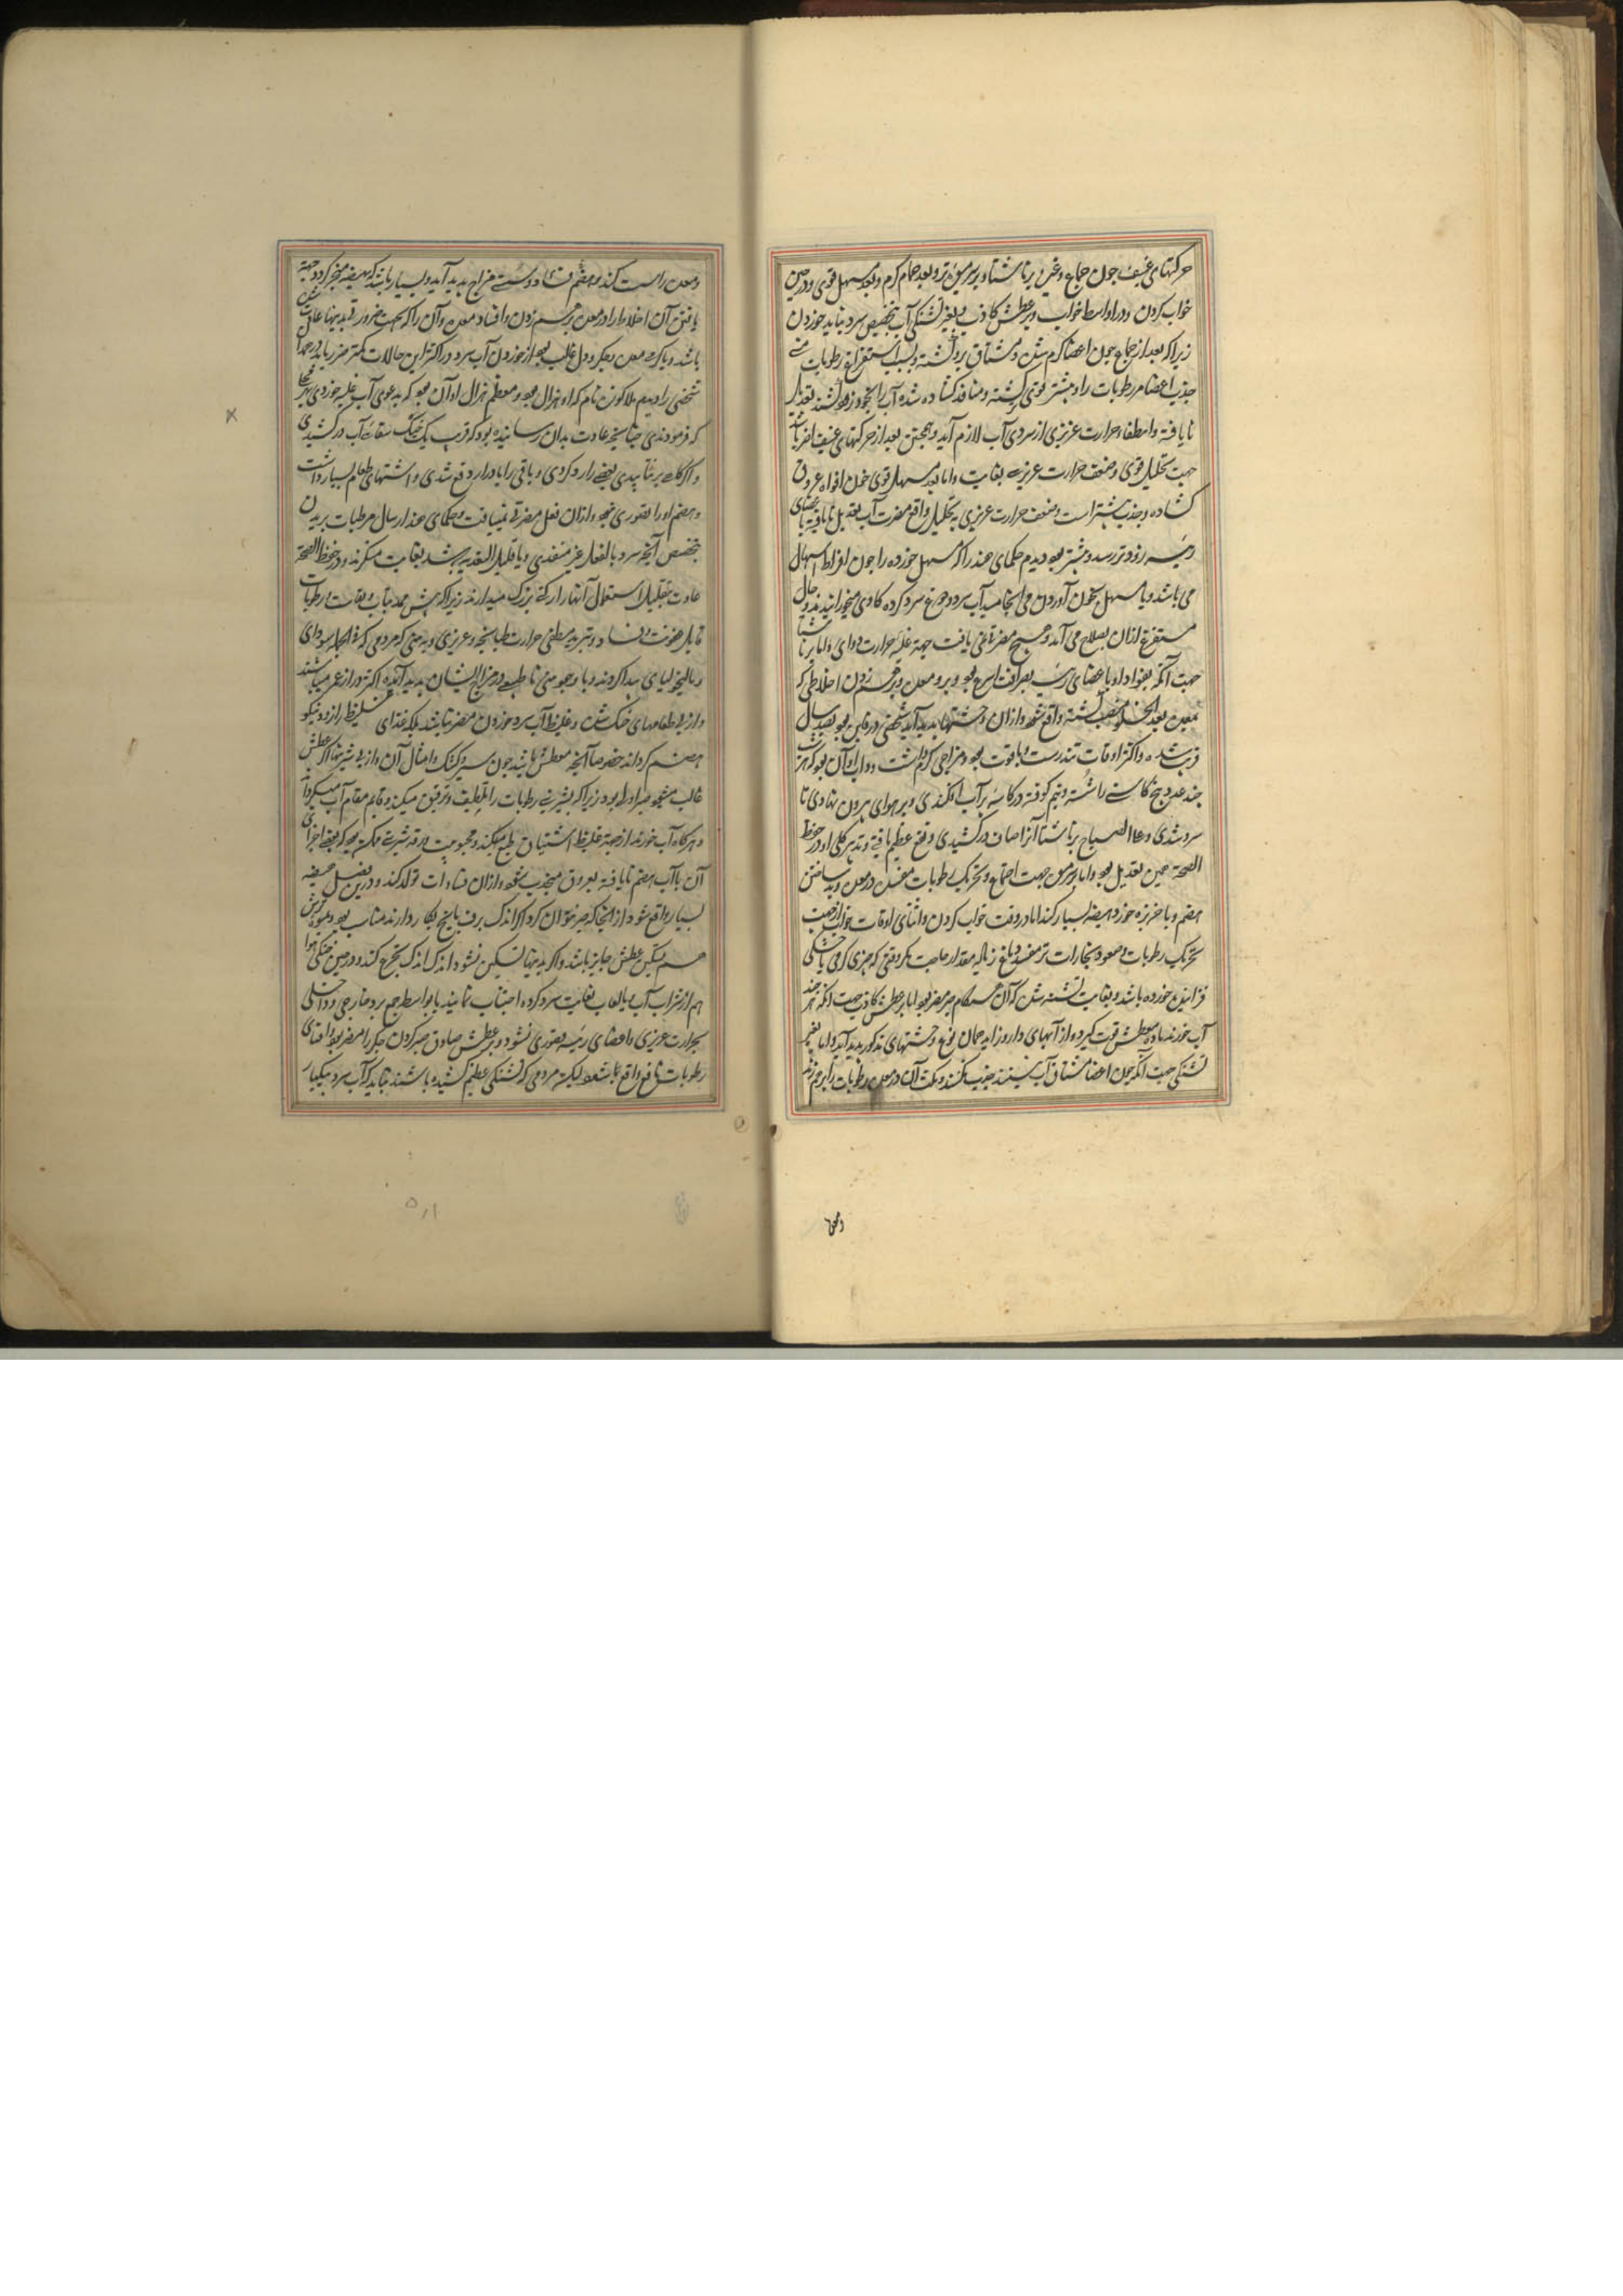 حرکتهای عنیف چون جماع و غیر و برناشتا و بر سر میوه تر و بعد حمام گرم و بعد مسهل قوی و در حین
خواب کردن و در اواسط خواب و بر عطش کاذب و بغیر تشنگی آب بتخصیص سرد نباید خوردن
زیرا که بعد از جماع چون اعضا گرم شده و مشتاق برد گشته و بسبب استفراغ رطوبات منی
جذب اعضا مر رطوبات را و بیشتر قوی گشته و منافذ گشاده شده آب را بخود زود کشند تعدیل
نایافته و انطفاء حرارت غریزی از سردی آب لازم آید و همچنین بعد از حرکتهای عنیف آخر
جهت تحلیل قوی و ضعف حرارت غریزیه بغایت و اما بعد مسهل قوی چون افواه عروق
گشاده و جذب بیشتر است و ضعف حرارت غریزی به تحلیل واقع مضرت آب تعدیل نایافته باعضای
رئیسه زودتر رسد و بیشتر بود دیدم حکمای هند را که مسهل خورده را چون افراط اسهال
می باشد و یا مسهل بخون آوردن می انجامید آب سرد و جوغ سرد کرده گاوی میخورانیدند و حال
مستفرغ ازان بصلاح می آمد و هیچ مضرتی نمی یافت جهة غلبه حرارت دوای و اما برناشتا
جهت آنکه بفؤاد او باعضای رئیسه بصرافت اسرع بود و برو معده و برهم زدن اخلاطی که
بمعده بعد انحلا منصب گشته واقع شود و ازان وحشتها پدید آید شخصی در قاین بود بصد سال
قریب شده و اکثر اوقات تندرست و با قوت بود و مزاجی گرم داشت و داب او آن بود که هر شب
چند عدد بیخ کاسنی را شسته و نیم کوفته در کاسه پر آب افکندی و بر هوای بیرون نهادی تا
سرد شدی و علی الصباح برناشتا آنرا صاف درکشیدی و نفع عظیم یافتی و تدبیر کلی او در حفظ
الصحة همین تعدیل بود و اما بر سر میوه جهت اجتماع و تحریک رطوبات مفسده در معده و بد ساختن
هضم و یا خربزه خورد هیضه بسیار کند اما در وقت خواب کردن و اثنای اوقات خواب از جهت
تحریک رطوبات و صعود بخارات تر مفسد دماغ زیاله مقدار حاجت مگر وقتی که چیزی گرمی یا خشکی
فزاینده خورده باشد و بغایت تشنه شده که آن هنگام صبر مضر بود اما بر عطش کاذب جهت آنکه هر چند
آب خورند ماده عطش قوت گیرد و از آبهای دارو زاید همان نوع وحشتهای مذکور پدید آید و اما بغیر
تشنگی جهت آنکه چون اعضا مشتاق آب نیستند جذب نکنند و مکث آن در معده رطوبات را برهم زند
ومعده
ومعده را سست کند و هضم فساد و سستی مزاج پدید آید و بسیار باشد که بهیضه منجر گردد جهة
یافتن آن اخلاط را در معده و برهم زدن و افساد معده و آن را که بحسب ضرورت بدینها عادت شده
باشد و یا گرمی معده و جگر و دل غالب بود از خوردن آب سرد در اکثر این حالات کمتر ضرر یابد در هرات
شخصی را دیدم ملا کوزه نام که او هزال بود و معظم هزال او آن بود که بدعوی آب غلبه خوردی هر جا
که فرمودندی چنانچه عادت بدان رسانیده بود که قریب یک خیک سقا آب درکشیدی
و اگر گاه بر تابیدی بعضی را رد کردی و باقی را بادرار دفع شدی و اشتهای طعام بسیار داشت
و هضم او را بقوری نبود و ازان فعل مضرتی نمییافت و حکمای هند ارسال مرطبات بریدن
بتخصیص آنچه سرد بالفعل غیر متغذی و یا قلیل التغذیه باشد بغایت منکرند و در حفظ الصحة
عادت بتقلیل استعمال آنها را رکن بزرگ میدارند زیرا که پیش همه بتاب و بغایت رطوبات
قابل عفونت و فساد و تبرید مطفی حرارت طباخه و غریزی و بدین که مردمی که فی الجمله سودای
و مالیخولیای پیدا کردند و باوجود منی نا طبیعی در مزاج ایشان پدید آمده اکثر دراز عمر میباشند
و از پی طعامهای خشک شده و غلیظ آب سرد خوردن مضر نباشد بلکه غذای غلیظ را زود نیکو
هضم گرداند خصوصا آنچه معطش باشد چون سیر و کشک و امثال آن و از پی شیرینها اگر عطش
غالب نشود صبر اولی بود زیرا که شیرینی رطوبات را تلطیف و ترقیق میکند و قایم مقام آب میگرداند
و هرگاه آب خورند از جهة غلیظ اشتیاق طبع میکند و محبوبیت بدرقه شیرینی ممکن بود که بعضی اجزای
آن با آب هضم نایافته بعروق منجذب شود و ازان فسادات تولد کند و درین فصل هیضه
بسیار واقع شود از انجا که صبر نتوان کرد اگر اندک برف یا یخ بکار دارند مناسب بود و میوه ترش
هم بتسکین عطش جایز باشد و اگر بدینها تسکین نشود اندک اندک تجرع کند و در حین خنکی هوا
هم از شراب آب و یا لعاب بغایت سرد کرده اجتناب نمایند تا بواسطه جمع برد خارجی و داخلی
بحرارت غریزی و اعضای رئیسه بقوری نشود و بر عطش صادق صبر کردن جگر را مضر بود و افنای
رطوبات نافع واقع باشد لیکن مردمی که تشنگی عظیم کشیده باشند نباید که آب سرد بیکبار